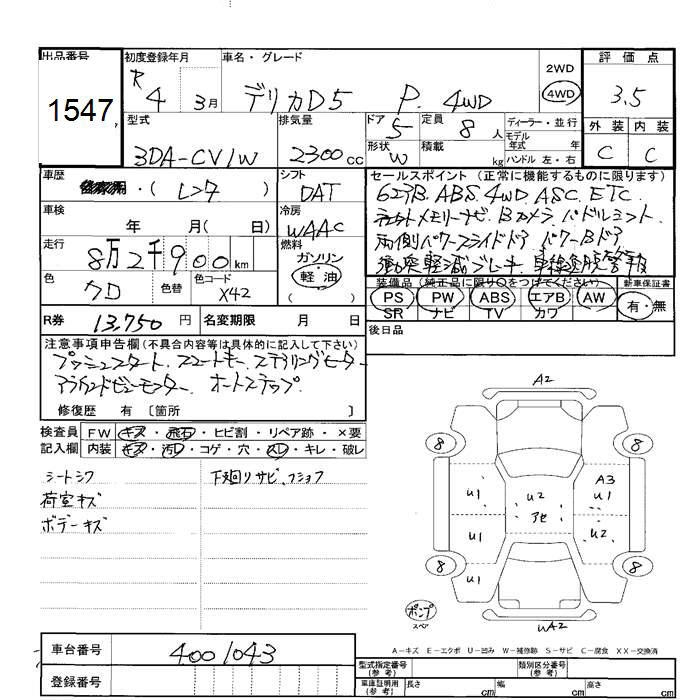 出品番号 初度登録年月 車名・グレード 2WD 4WD 評価点
1547 R4 3月 デリカD5 P. 4WD 3.5
型式 排気量 ドア 5 定員 8人 ディーラー・並行 外装 内装
3DA-CV1W 2300cc 形状 W 積載 kg モデル年式 年式 C C
ハンドル 左・右
車歴 ・( レンタ ) シフト DAT セールスポイント (正常に機能するものに限ります)
車検 年 月( 日) 冷房 WAAC 6エアB. ABS. 4WD. ASC. ETC.
メモリーナビ. Bカメラ. パドルシフト.
走行 8万2千900km 燃料 ガソリン 軽油 ( ) 両側パワースライドドア. パワーBドア
衝突軽減ブレーキ. 車線逸脱警報
色 クロ 色替 色コード X42 装備品 (純正品に限り○をつけてください) 新車保証書
PS PW ABS エアB AW 有・無
SR ナビ TV カワ
R券 13,750円 名変期限 月 日 後日品
注意事項申告欄(不具合内容等は具体的に記入して下さい)
プッシュスタート. スマートキー. ステアリングヒーター
アラウンドビューモニター. オートステップ.
修復歴 有 〔箇所 〕
検査員 FW キズ・飛石・ヒビ割・リペア跡・×要
記入欄 内装 キズ・汚レ・コゲ・穴・スレ・キレ・破レ
シートシワ 下廻りサビ、フショク
荷室キズ
ボデーキズ
A2
8 8
U1 U2 A3 U1
アセ
U1 U2
8 U1 8
ポンプ
スペア
WA2
A-キズ E-エクボ U-凹み W-補修跡 S-サビ C-腐食 XX-交換済
車台番号 4001043
登録番号
型式指定番号(参考) 類別区分番号(参考)
車庫証明用(参考) 長さ cm 幅 cm 高さ cm